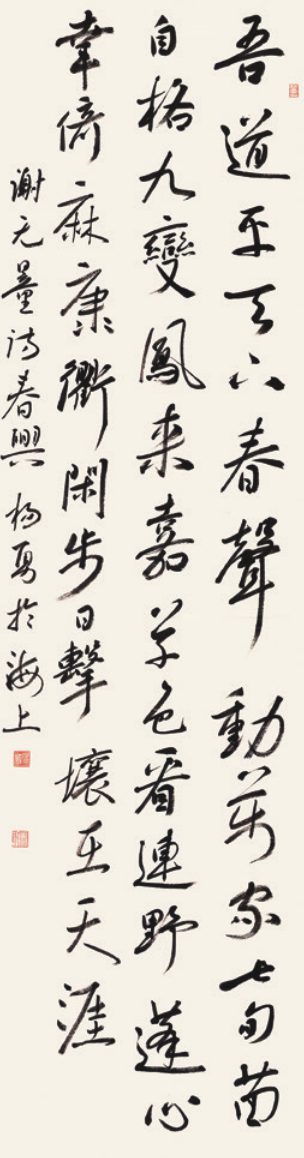 吾道平天下春聲動萬家七旬苗
自格九變鳳來嘉草色看連野蓬心
幸倚麻康衢閑步日擊壤至天涯
謝无量詩春興 楊勇於海上